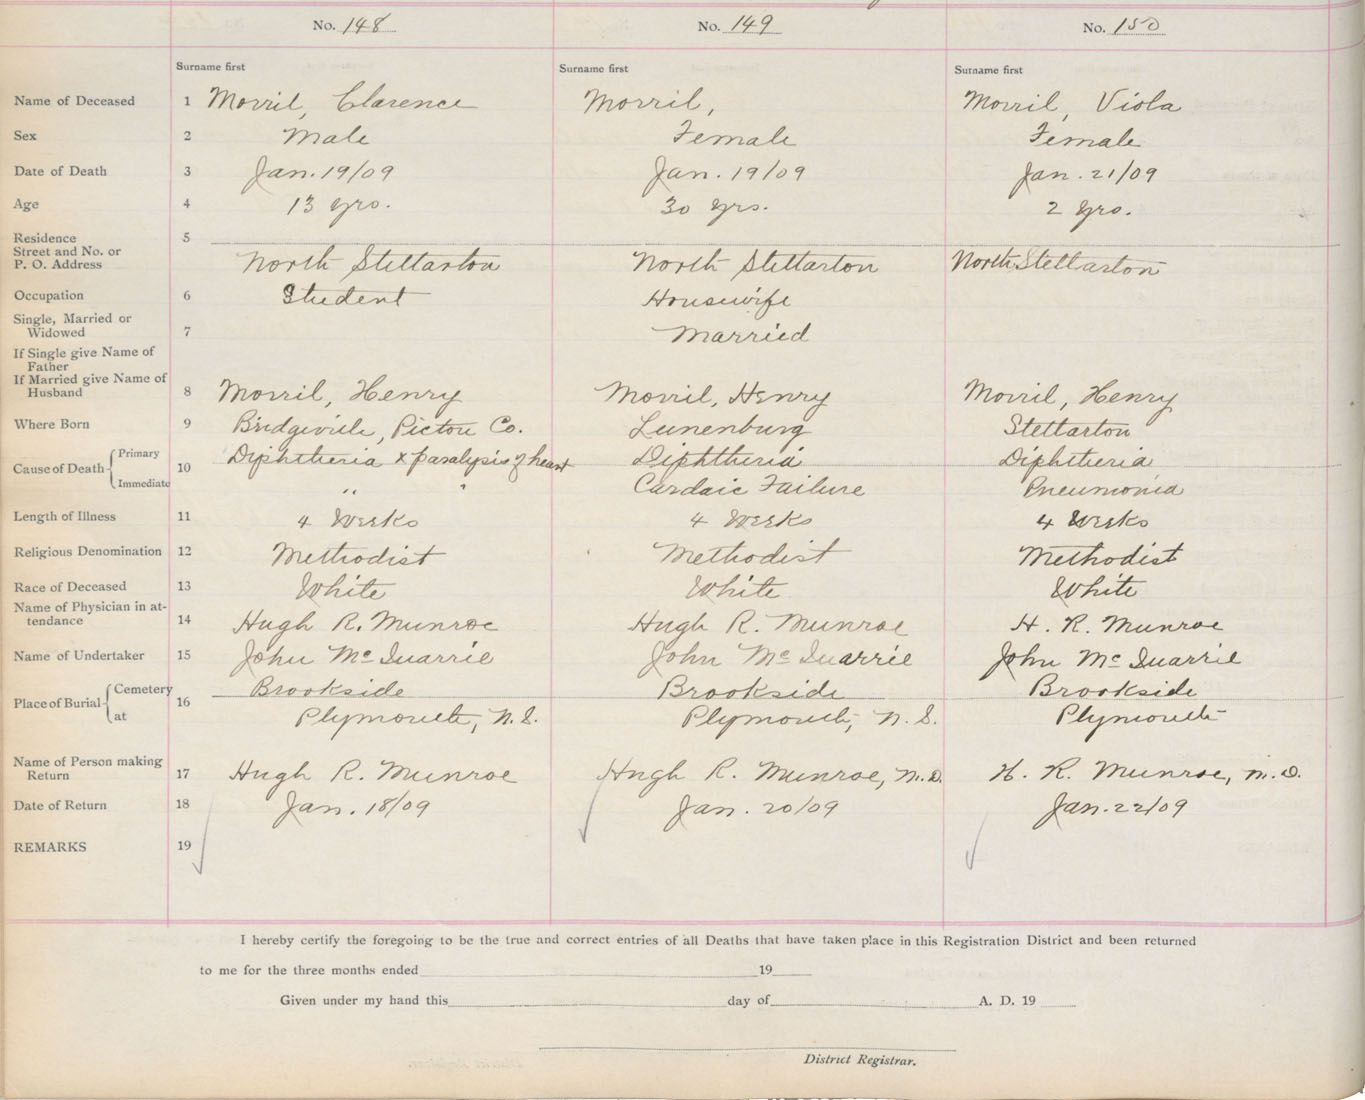 No. 148 No. 149 No. 150
Surname first Surname first Surname first
Name of Deceased 1 Morril, Clarence Morril, Morril, Viola
Sex 2 Male Female Female
Date of Death 3 Jan. 19/09 Jan. 19/09 Jan. 21/09
Age 4 13 yrs. 30 yrs. 2 yrs.
Residence 5
Street and No. or
P. O. Address North Stellarton North Stellarton North Stellarton
Occupation 6 Student Housewife
Single, Married or
Widowed 7 Married
If Single give Name of
Father
If Married give Name of
Husband 8 Morril, Henry Morril, Henry Morril, Henry
Where Born 9 Bridgeville, Pictou Co. Lunenburg Stellarton
Cause of Death { Primary 10 Diphtheria x paralysis of heart Diphtheria Diphtheria
Immediate " " Cardaic Failure Pneumonia
Length of Illness 11 4 Weeks 4 Weeks 4 Weeks
Religious Denomination 12 Methodist Methodist Methodist
Race of Deceased 13 White White White
Name of Physician in at-
tendance 14 Hugh R. Munroe Hugh R. Munroe H. R. Munroe
Name of Undertaker 15 John McQuarrie John McQuarrie John McQuarrie
Place of Burial { Cemetery 16 Brookside Brookside Brookside
at Plymouth, N.S. Plymouth, N.S. Plymouth
Name of Person making
Return 17 Hugh R. Munroe Hugh R. Munroe, M.D. H. R. Munroe, M.D.
Date of Return 18 Jan. 18/09 Jan. 20/09 Jan. 22/09
REMARKS 19
I hereby certify the foregoing to be the true and correct entries of all Deaths that have taken place in this Registration District and been returned
to me for the three months ended 19
Given under my hand this day of A. D. 19
District Registrar.